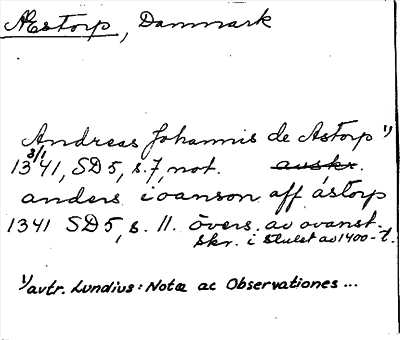 Æstorp, Danmark
Andreas Johannis de Astorp 1)
13 3/1 41, SD 5, s. 7, not. avskr.
anders ioanson aff åstorp
1341 SD 5, s. 11. övers. av ovanst.
skr. i slutet av 1400-t.
1) avtr. Lundius: Notæ ac Observationes...